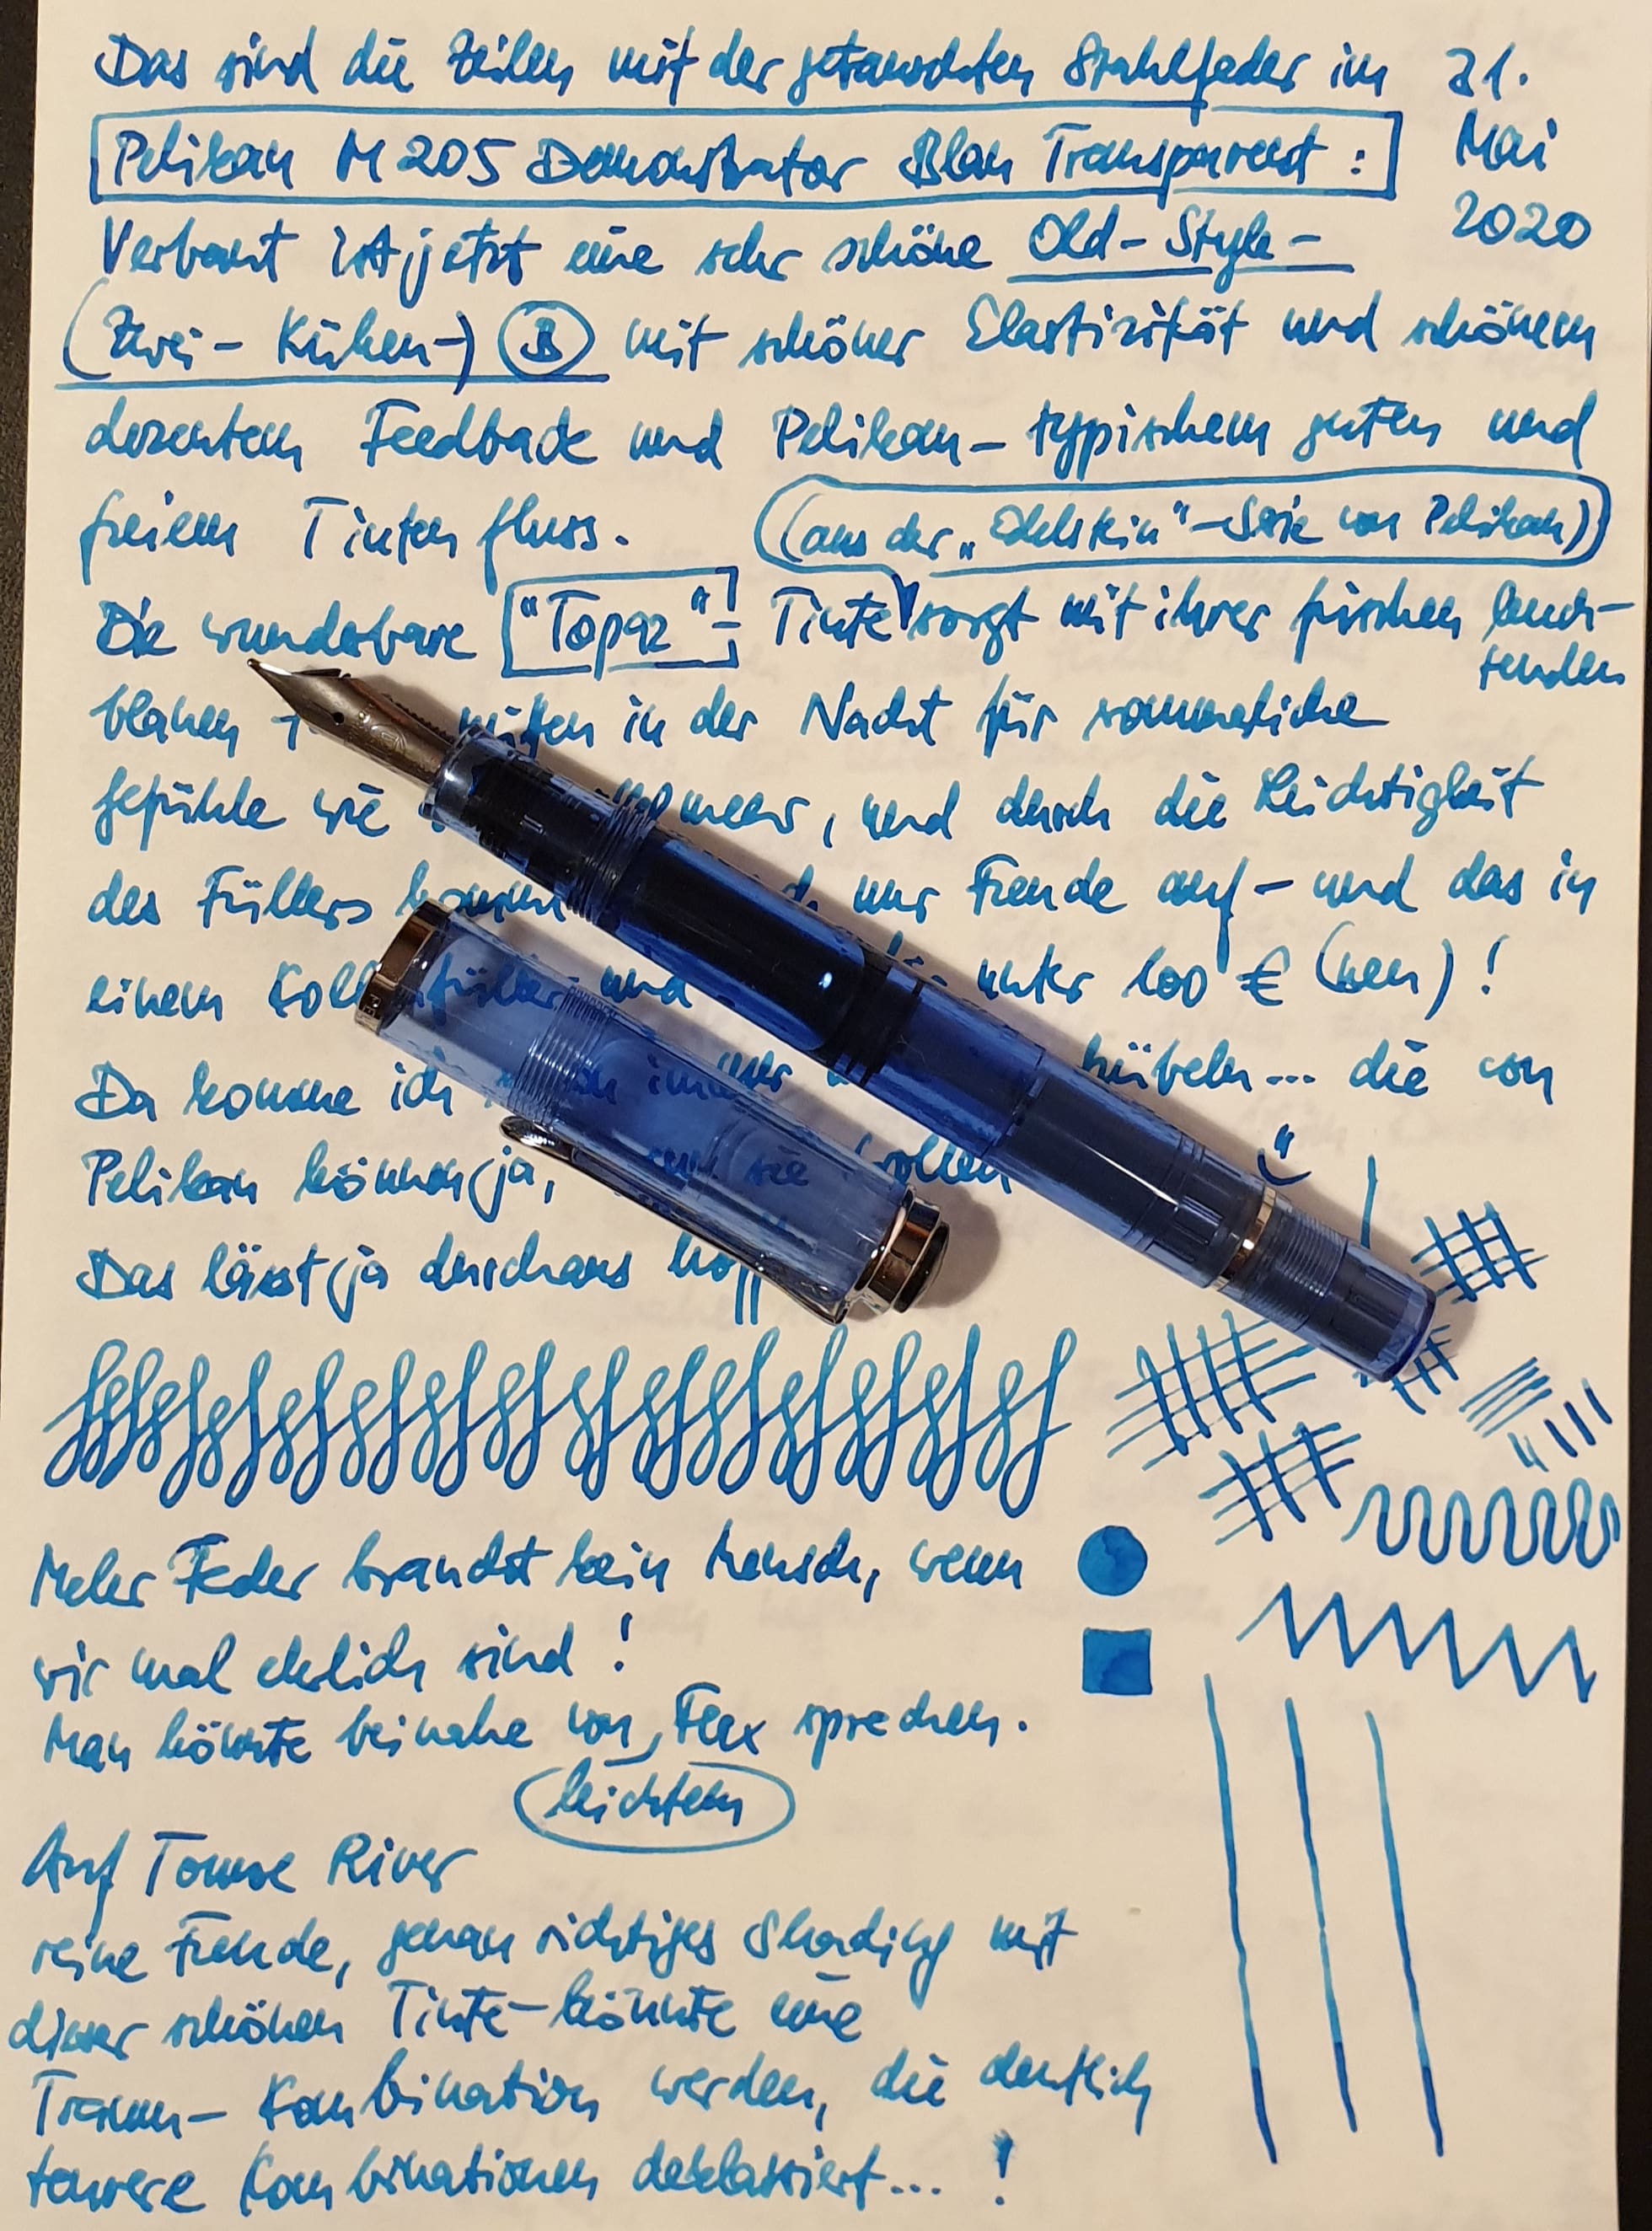 Das sind die Zeilen mit der getauschten Stahlfeder im
31.
Mai
2020
Pelikan M205 Demonstrator Blau Transparent:
Verbaut ist jetzt eine sehr schöne Old-Style-
(Zwei-Küken-) B mit schöner Elastizität und schönem
dezentem Feedback und Pelikan-typischem guten und
freiem Tintenfluss.
(aus der „Edelstein"-Serie von Pelikan)
Die wunderbare "Topaz"- Tinte sorgt mit ihrer frischen leuch-
tenden
blauen mitten in der Nacht für sommerliche
Gefühle wie und durch die Leichtigkeit
des Füllers nur Freude auf - und das in
einem und unter 100 € (neu)!
Da komme ich immer die von
Pelikan können ja, sie wollen
Das lässt ja durchaus
Mehr Feder braucht kein Mensch, wenn
wir mal ehrlich sind!
Man könnte beinahe von Flex sprechen.
leichtem
Auf Tomoe River
reine Freude, genau richtiges Shading mit
dieser schönen Tinte - könnte eine
Traum-Kombination werden, die deutlich
teurere Kombinationen deklassiert...!